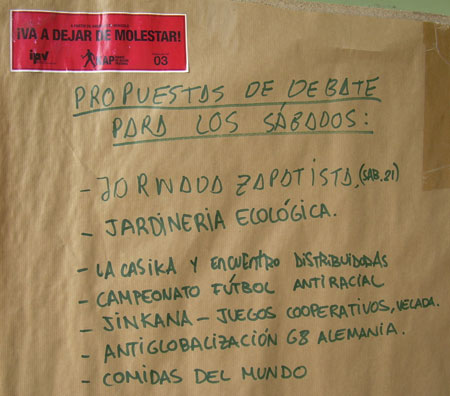 ¡VA A DEJAR DE MOLESTAR!
ipv
03
PROPUESTAS DE DEBATE
PARA LOS SÁBADOS:
- JORNADA ZAPATISTA. (SAB. 21)
- JARDINERIA ECOLÓGICA.
- LA CASIKA Y ENCUENTRO DISTRIBUIDORAS
- CAMPEONATO FÚTBOL ANTIRACIAL
- JINKANA - JUEGOS COOPERATIVOS, VELADA.
- ANTIGLOBALIZACIÓN G8 ALEMANIA.
- COMIDAS DEL MUNDO